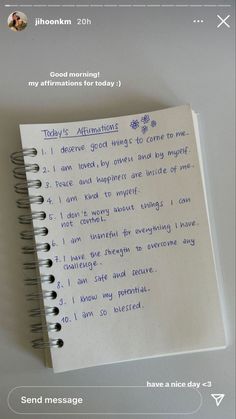 jihoonkm 20h
Good morning!
my affirmations for today :)
Today's Affirmations
1. I deserve good things to come to me.
2. I am loved, by others and by myself.
3. Peace and happiness are inside of me.
4. I am kind to myself.
5. I don't worry about things I can
not control.
6. I am thankful for everything I have.
7. I have the strength to overcome any
challenge.
8. I am safe and secure.
9. I know my potential.
10. I am so blessed.
have a nice day <3
Send message